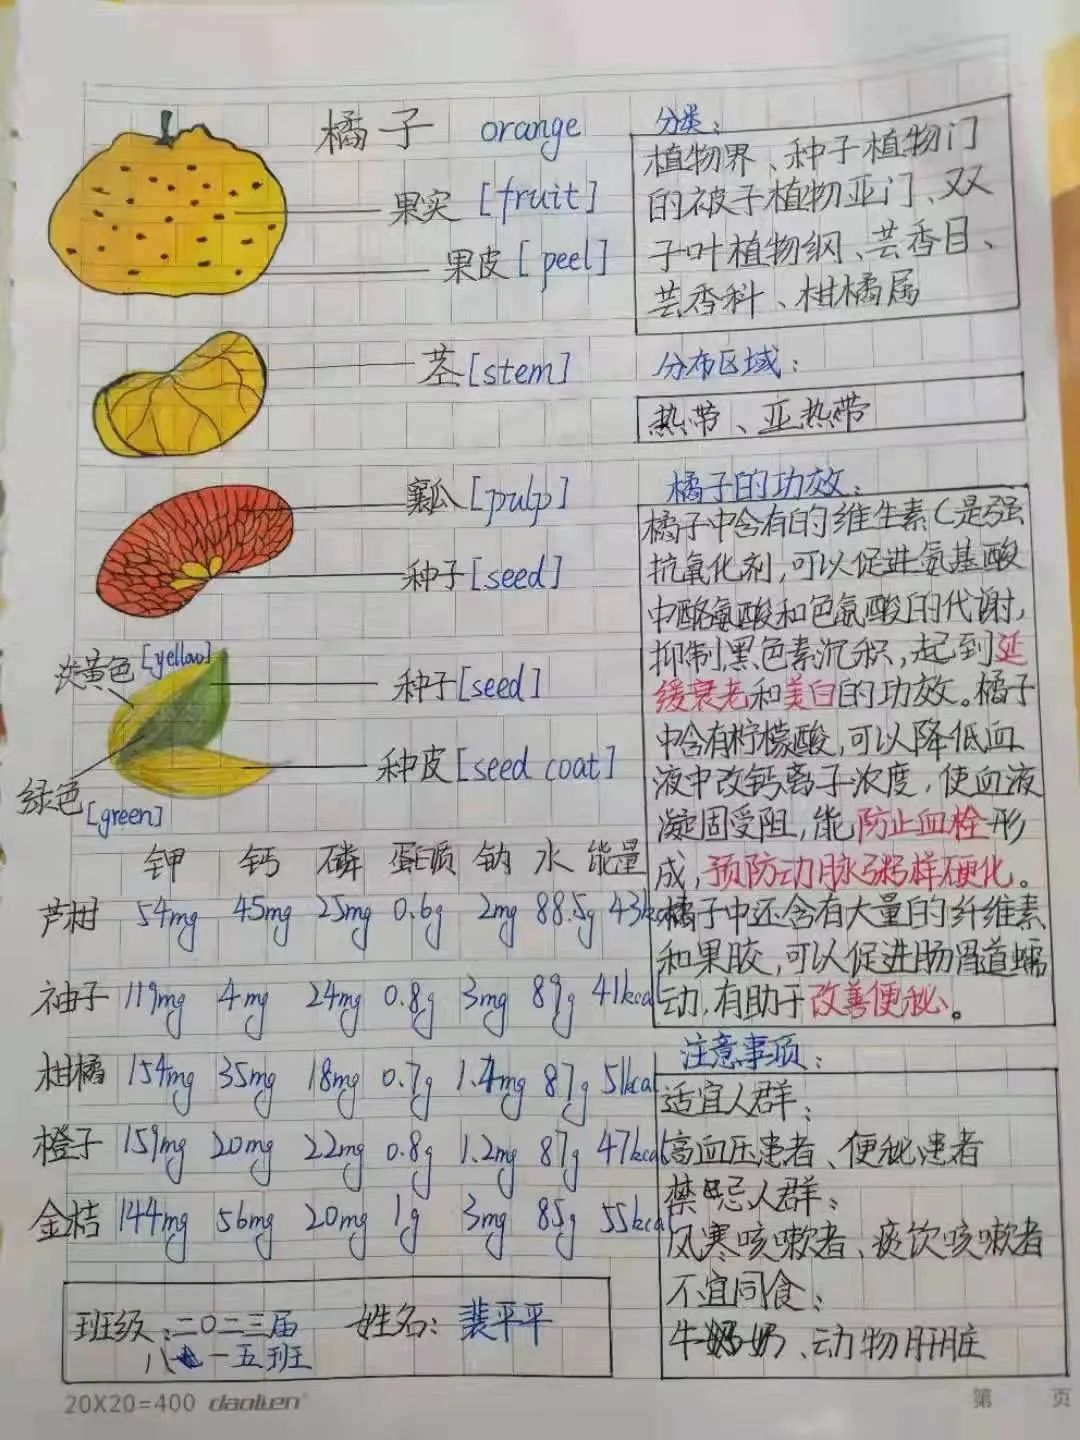 橘子 orange
果实 [fruit]
果皮 [peel]
茎 [stem]
瓤 [pulp]
种子 [seed]
淡黄色 [yellow]
种子 [seed]
绿色 [green]
种皮 [seed coat]
钾 钙 磷 蛋白质 钠 水 能量
芦柑 54mg 45mg 25mg 0.6g 2mg 88.5g 43kcal
柚子 119mg 4mg 24mg 0.8g 3mg 89g 41kcal
柑橘 154mg 35mg 18mg 0.7g 1.4mg 87g 51kcal
橙子 159mg 20mg 22mg 0.8g 1.2mg 87g 47kcal
金桔 144mg 56mg 20mg 1g 3mg 85g 55kcal
班级：二〇二三届 姓名：裴平平
八 一五班
分类：
植物界、种子植物门
的被子植物亚门、双
子叶植物纲、芸香目、
芸香科、柑橘属
分布区域：
热带、亚热带
橘子的功效：
橘子中含有的维生素C是强
抗氧化剂，可以促进氨基酸
中酪氨酸和色氨酸的代谢，
抑制黑色素沉积，起到延
缓衰老和美白的功效。橘子
中含有柠檬酸，可以降低血
液中改钙离子浓度，使血液
凝固受阻，能防止血栓形
成，预防动脉粥样硬化。
橘子中还含有大量的纤维素
和果胶，可以促进肠胃道蠕
动，有助于改善便秘。
注意事项：
适宜人群：
高血压患者、便秘患者
禁忌人群：
风寒咳嗽者、痰饮咳嗽者
不宜同食：
牛奶、动物肝脏
20X20=400 daolien
第 页